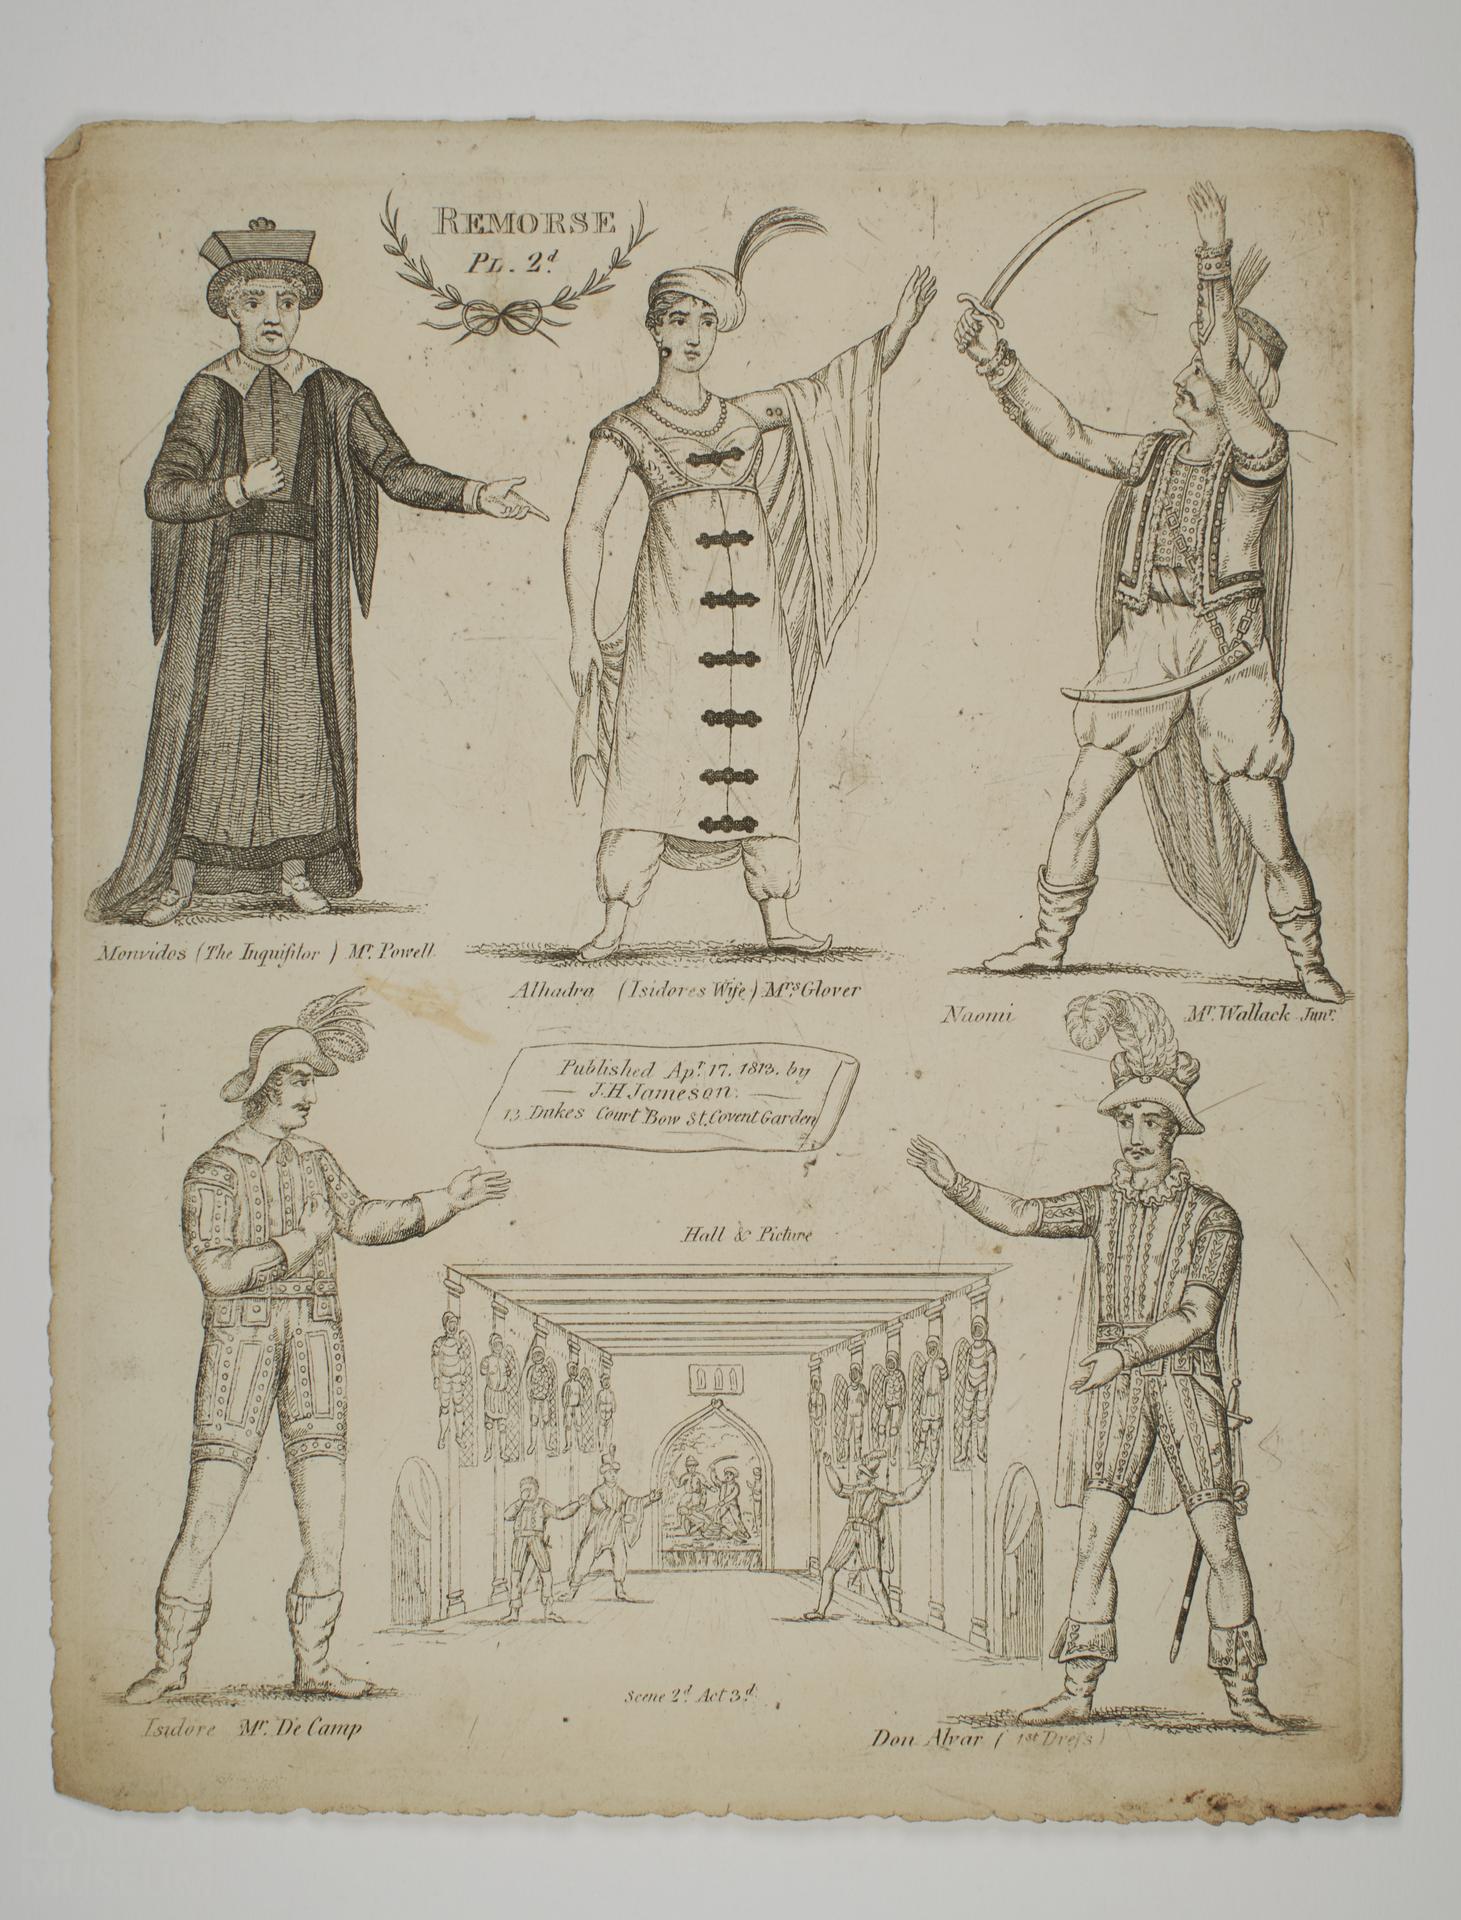 REMORSE
PL. 2d.
Monvidos (The Inquiſitor) Mr. Powell.
Alhadra (Isidores Wife) Mrs. Glover
Naomi Mr. Wallack Junr.
Published Apr. 17. 1813. by
J.H Jameson.
13. Dukes Court Bow St. Covent Garden
Hall & Picture
Scene 2d. Act 3d.
Isidore Mr. De Camp
Don Alvar (1st Dreſs)
MUSEUM